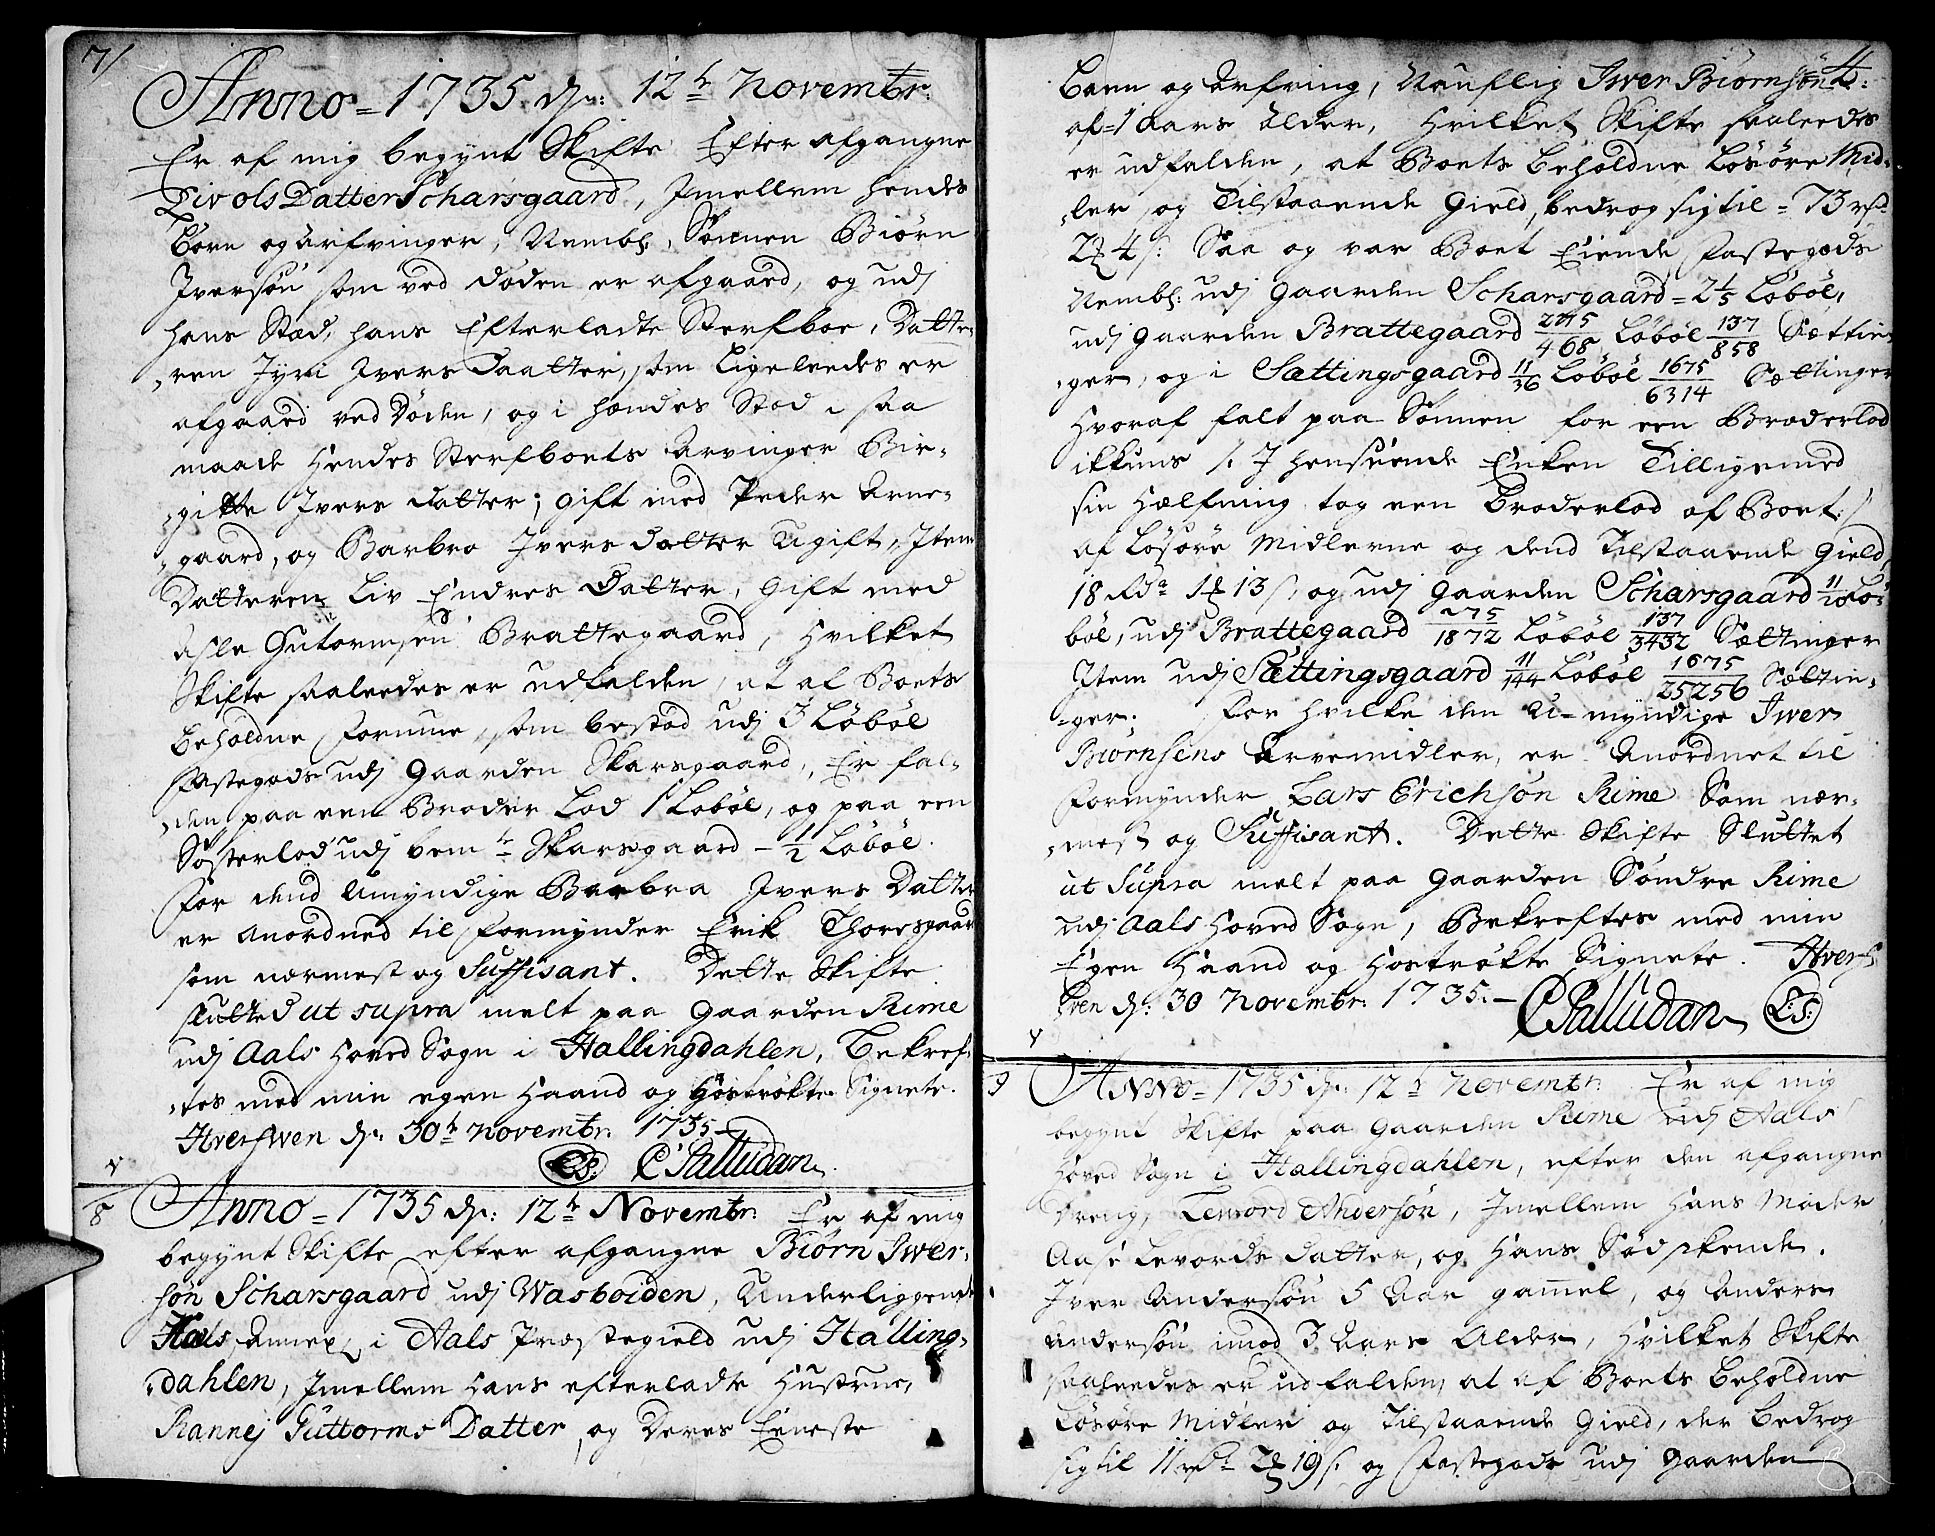 7/
Anno = 1735 d: 12t Novembr:
Er af mig begynt Skifte Efter afgangne
Liv ols Datter Scharsgaard, Imellem hendes
Børn og Arfvinger, Nembl: Sønnen Biørn
Iversøn som ved døden er afgaaed, og udj
hans Stæd, hans Efterladte Sterfboe, Datte-
-ren Jyri Ivers Daatter, som Ligeleedes er
afgaaed ved Døden, og i hendes Stæd i saa
maade Hendes Sterfboets Arvinger Bir-
-gitte Ivers datter; gift med Peder Arne-
-gaard, og Barbro Ivers datter Ugift, Item
Datteren Liv Endres Datter, Gift med
Asle Gutormsen Brattegaard, Hvilket
Skifte saaleedes er udfalden, at af Boets
beholdne Formue, som bestod udj 3 Løbøl
Fastegods udj Gaarden Skarsgaard, Er fal-
-den paa een Broder Lod 1 Løbøl, og paa een
Søsterlod udj bemte Skarsgaard - 1/2 Løbøl.
For dend Umyndige Barbra Ivers Datter
er Anordned til Formynder Erik Thoresgaard
som nærmest og Suffisant. Dette Skifte
slutted ut supra melt paa Gaarden Rime
udj Aals Hoved Sogn i Hallingdahlen, Bekref-
-tes med min egen Haand og Hostrøkte Signete.
Hverfwen d: 30t Novembr: 1735.
LS: C Palludan
8
Anno = 1735 d: 12t Novembr: Er af mig
begynt Skifte efter afgangne Biørn Iver-
søn Scharsgaard udj Wasboiden, Underliggende
Hals Annex, i Aals Præstegield udj Halling-
-dahlen, Imellem Hans efterladte Hustrue,
Rannej Guttorms Datter, og Deres Eeneste
4
Barn og Arfving, Naufnlig Iwer Biørnsøn
af 1 Aars Alder, Hvilket Skifte saaleedes
er udfalden, at Boets beholdne Løsøre Mid-
-ler og Tilstaaende Gield, bedrog sig til = 73 rd
2 4 s: Saa og var Boet Eiende Fastegods
Nembl: udj Gaarden Scharsgaard = 2 1/5 Løbøl,
udj Gaarden Brattegaard 275/468 Løbøl 137/858 Sættin-
-ger, og i Sættingsgaard 11/36 Løbøl 1675/6314 Sættinger
Hvoraf falt paa Sønnen for een Broderlod
ikkuns /: I henseende Enken Tilligemed
sin Hælfning tog een Broderlod af Boet :/
af Løsøre Midlerne og dend Tilstaaende Gield,
18 Rdr 1 13 s, og udj Gaarden Scharsgaard 11/20 Lø-
bøl, udj Brattegaard 275/1872 Løbøl 137/3432 Sættinger
Item udj Sættingsgaard 11/144 Løbøl 1675/25256 Sættin-
-ger. For hvilke den U-myndige Iwer
Biørnsens Arvemidler, er Anordnet til
Formynder Lars Erichsøn Rime Som nær-
-mest og Suffisant. Dette Skifte Sluttet
ut Supra melt paa Gaarden Søndre Rime
udj Aals Hoved Sogn, Bekreftes med min
Egen Haand og Hostrøkte Signete. Hverf-
Wen d: 30 Novembr: 1735.
C Palludan LS:
9
Anno = 1735 d: 12t Novembr: Er af mig
begynt Skifte paa Gaarden Rime udj Aals
Hoved Sogn i Hallingdahlen, efter den afgangne
Dreng, Leword Andersøn, Imellem Hans Moder
Aase Levords datter, og Hans Sødskende.
Iver Andersøn 5 Aar gammel, og Anders
Andersøn imod 3 Aars Alder, Hvilket Skifte
saaleedes er udfalden, at af Boets beholdne
Løsøre Midler og Tilstaaende Gield, der bedrog
sig til 11 rd 2 19 s: og Fastegods udj Gaarden